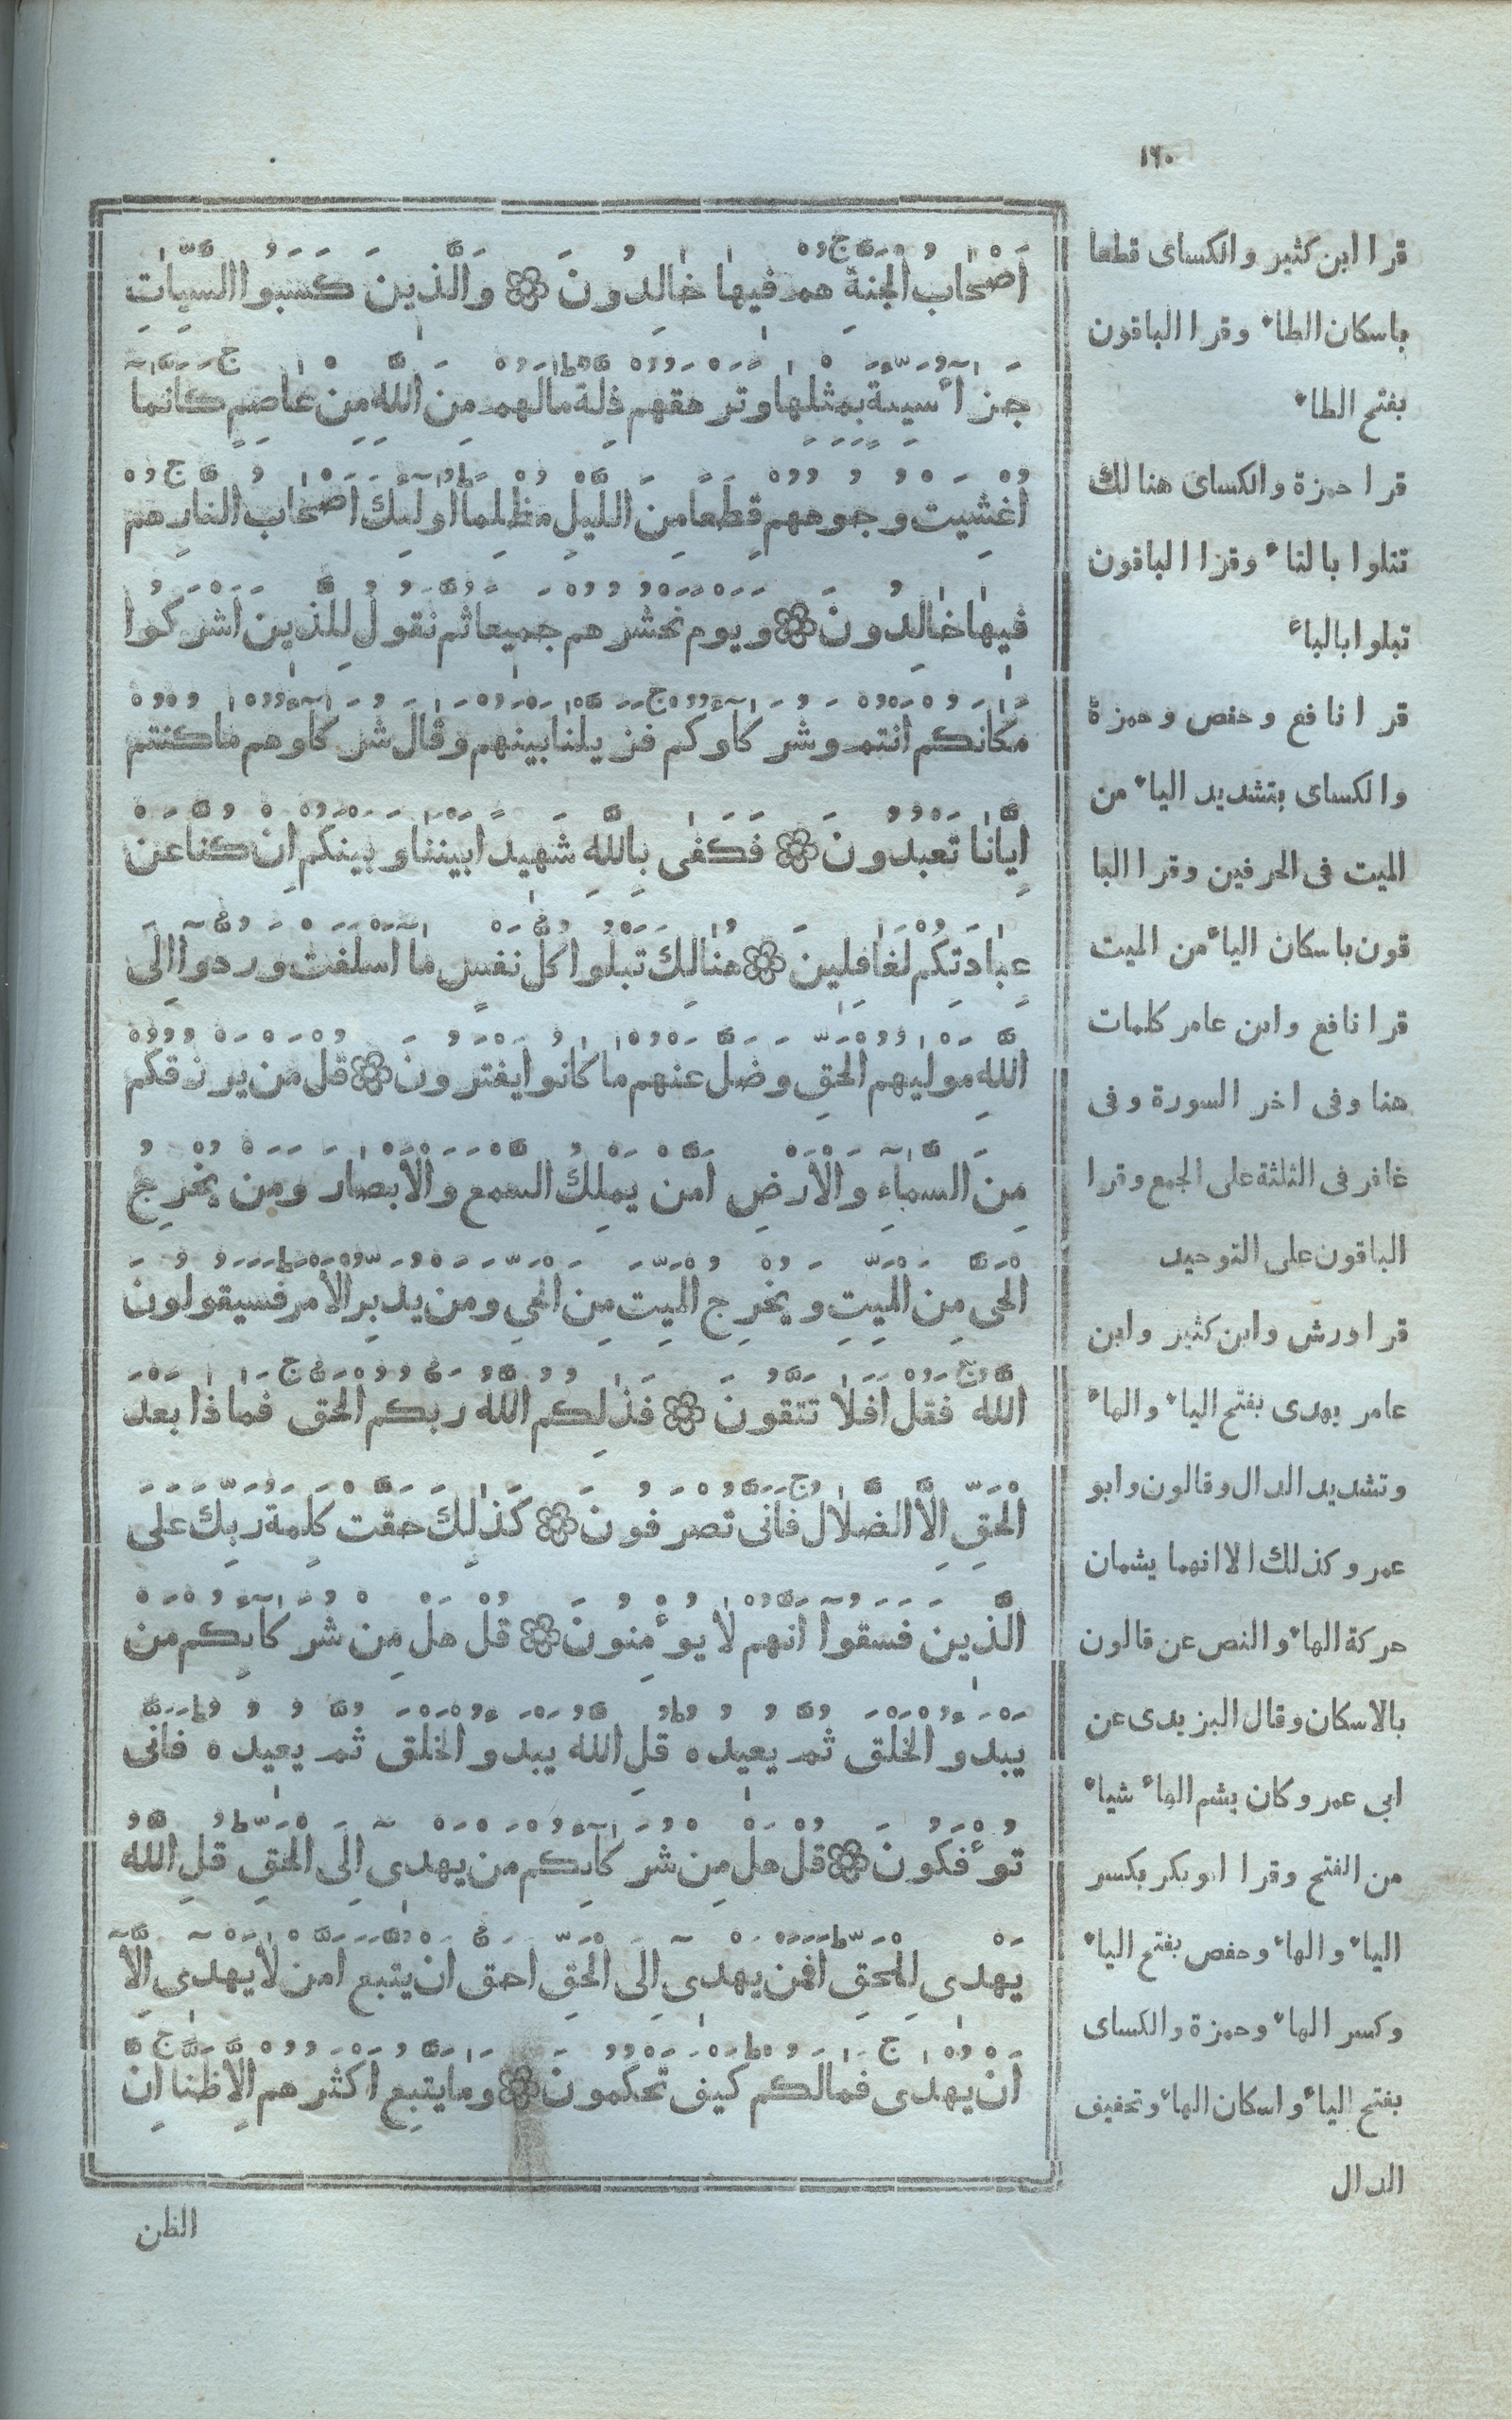 ١٦٠
أَصْحَابُ الْجَنَّةِ هُمْ فِيهَا خَالِدُونَ ۞ وَالَّذِينَ كَسَبُوا السَّيِّاٰتِ
جَزَآءُ سَيِّئَةٍ بِمِثْلِهَا وَتَرْهَقُهُمْ ذِلَّةٌ مَالَهُمْ مِنَ اللَّهِ مِنْ عَاصِمٍ كَأَنَّمَآ
أُغْشِيَتْ وُجُوهُهُمْ قِطَعًا مِنَ اللَّيْلِ مُظْلِمًا أُولَٰئِكَ أَصْحَابُ النَّارِ هُمْ
فِيهَا خَالِدُونَ ۞ وَيَوْمَ نَحْشُرُهُمْ جَمِيعًا ثُمَّ نَقُولُ لِلَّذِينَ أَشْرَكُوا
مَكَانَكُمْ أَنْتُمْ وَشُرَكَآوُكُمْ فَزَيَّلْنَا بَيْنَهُمْ وَقَالَ شُرَكَآوُهُمْ مَا كُنْتُمْ
إِيَّانَا تَعْبُدُونَ ۞ فَكَفَى بِاللَّهِ شَهِيدًا بَيْنَنَا وَبَيْنَكُمْ إِنْ كُنَّا عَنْ
عِبَادَتِكُمْ لَغَافِلِينَ ۞ هُنَالِكَ تَبْلُوا كُلُّ نَفْسٍ مَا أَسْلَفَتْ وَرُدُّوآ إِلَى
اللَّهِ مَوْلَيٰهُمُ الْحَقِّ وَضَلَّ عَنْهُمْ مَا كَانُوا يَفْتَرُونَ ۞ قُلْ مَنْ يَرْزُقُكُمْ
مِنَ السَّمَآءِ وَالْأَرْضِ أَمَّنْ يَمْلِكُ السَّمْعَ وَالْأَبْصَارَ وَمَنْ يُخْرِجُ
الْحَىَّ مِنَ الْمَيِّتِ وَيُخْرِجُ الْمَيِّتَ مِنَ الْحَىِّ وَمَنْ يُدَبِّرُ الْأَمْرَ فَسَيَقُولُونَ
اللَّهُ فَقُلْ أَفَلَا تَتَّقُونَ ۞ فَذَٰلِكُمُ اللَّهُ رَبُّكُمُ الْحَقُّ فَمَاذَا بَعْدَ
الْحَقِّ إِلَّا الضَّلَالُ فَأَنَّى تُصْرَفُونَ ۞ كَذَٰلِكَ حَقَّتْ كَلِمَةُ رَبِّكَ عَلَى
الَّذِينَ فَسَقُوآ أَنَّهُمْ لَا يُؤْمِنُونَ ۞ قُلْ هَلْ مِنْ شُرَكَآئِكُمْ مَنْ
يَبْدَؤُ الْخَلْقَ ثُمَّ يُعِيدُهُ قُلِ اللَّهُ يَبْدَؤُ الْخَلْقَ ثُمَّ يُعِيدُهُ فَأَنَّى
تُؤْفَكُونَ ۞ قُلْ هَلْ مِنْ شُرَكَآئِكُمْ مَنْ يَهْدِى إِلَى الْحَقِّ قُلِ اللَّهُ
يَهْدِى لِلْحَقِّ أَفَمَنْ يَهْدِىٓ إِلَى الْحَقِّ أَحَقُّ أَنْ يُتَّبَعَ أَمَّنْ لَا يَهِدِّىٓ إِلَّآ
أَنْ يُهْدَى فَمَا لَكُمْ كَيْفَ تَحْكُمُونَ ۞ وَمَا يَتَّبِعُ أَكْثَرُهُمْ إِلَّا ظَنًّا إِنَّ
الظن
قرا ابن كثير والكساى قطعا
باسكان الطاء وقرا الباقون
بفتح الطاء
قرا حمزة والكساى هنالك
تتلوا بالتاء وقرا الباقون
تبلوا بالباء
قرا نافع وحفص وحمزة
والكساى بتشديد الياء من
الميت فى الحرفين وقرا البا
قون باسكان الياء من الميت
قرا نافع وابن عامر كلمات
هنا وفى اخر السورة وفى
غافر فى الثلثة على الجمع وقرا
الباقون على التوحيد
قرا ورش وابن كثير وابن
عامر يهدى بفتح الياء والهاء
وتشديد الدال وقالون وابو
عمرو كذلك الا انهما يشمان
حركة الهاء والنص عن قالون
بالاسكان وقال اليزيدى عن
ابى عمرو كان يشم الهاء شياء
من الفتح وقرا ابو بكر بكسر
الياء والهاء وحفص بفتح الياء
وكسر الهاء وحمزة والكساى
بفتح الياء واسكان الهاء وتخفيف
الدال